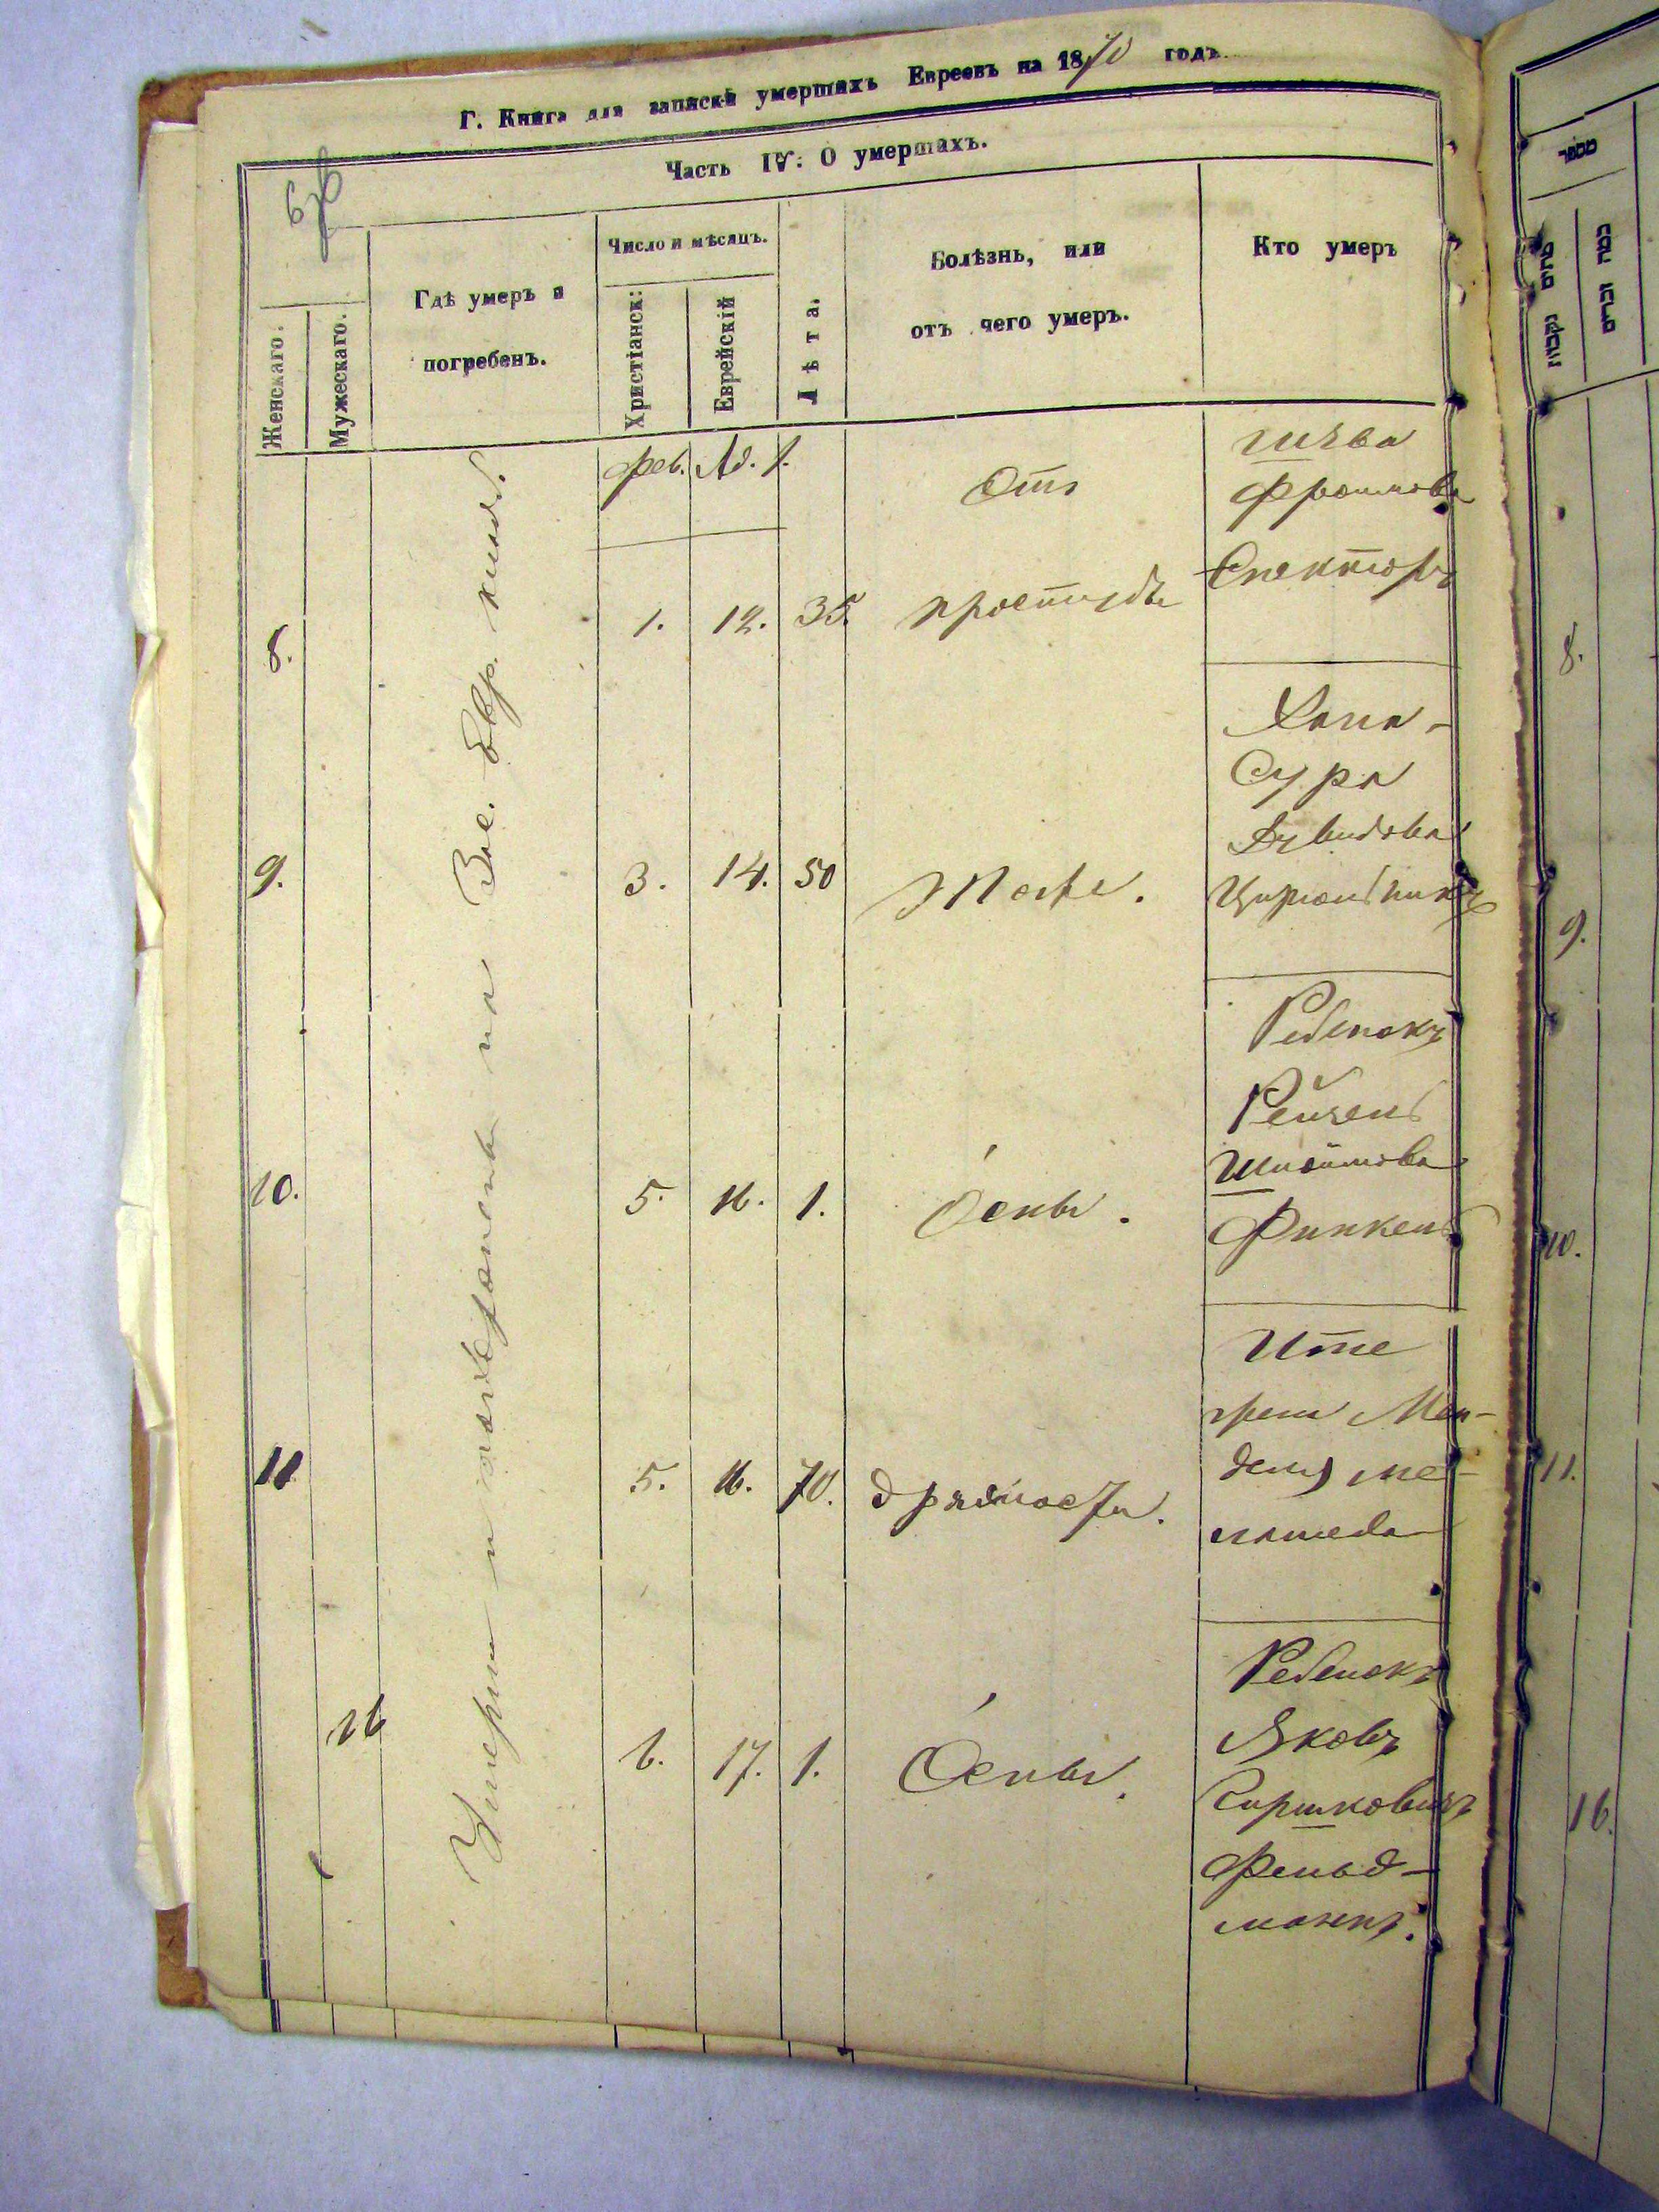 Г. Книга для записки умершихъ Евреевъ на 1870 годъ
Часть IV: О умершихъ.
Женскаго.
Мужескаго.
Гдѣ умеръ и
погребенъ.
Число и мѣсяцъ.
Христіанск:
Еврейскій
Лѣта.
Болѣзнь, или
отъ чего умеръ.
Кто умеръ
Умерли и похоронены на Вас. Евр. кладб.
фев. Ад. 1.
8. 1. 12. 35. Отъ
простуды
Фроимова
Спекторъ
9. 3. 14. 50 Тоже.
Хана-
Сура
Дувидова
Цирюльникъ
10. 5. 16. 1. Оспы.
Ребенокъ
Рейзель
Шлоймова
Финкель
11 5. 16. 70. дряхлости.
Ите
Мен-
деля ме-
ламеда
16 6. 17. 1. Оспы.
Ребенокъ
Яковъ
Сиршковичъ
Фельд-
манъ.
מספר
נקבות
זכרים
8.
9.
10.
11.
16.